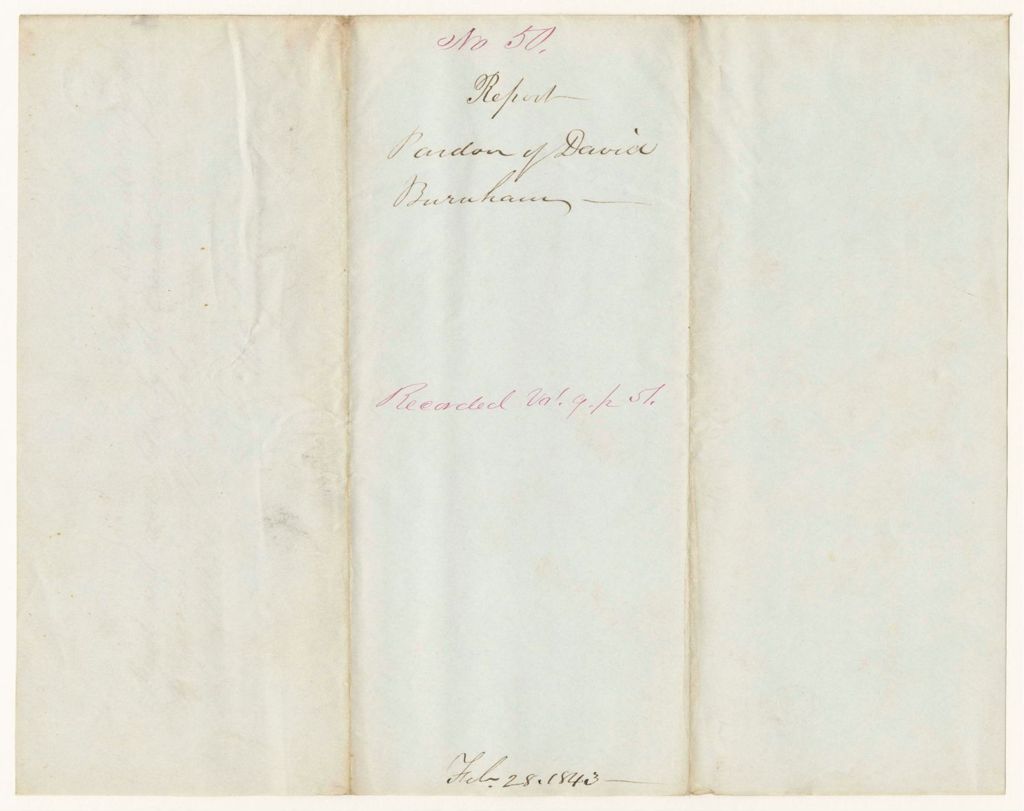 No 50.
Report
Pardon of David
Burnham
Recorded Vol. 9. p 51.
Feb. 28. 1843